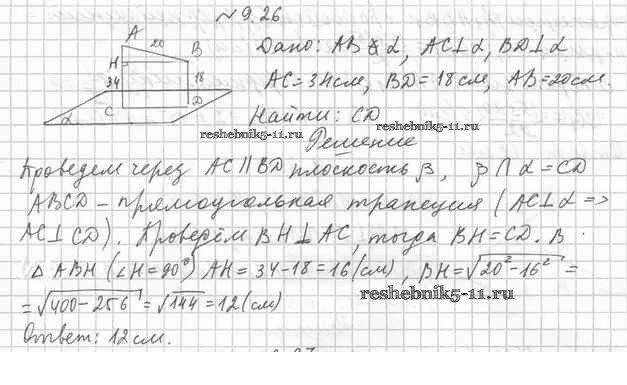 № 9.26
A
20
B
H
34
18
C
D
α
Дано: AB ⊄ α, AC⊥α, BD⊥α
AC=34см, BD=18см, AB=20см.
Найти: CD
reshebnik5-11.ru
reshebnik5-11.ru
Решение
Проведем через AC∥BD плоскость β, β∩α=CD
ABCD – прямоугольная трапеция (AC⊥α =>
AC⊥CD). Проведём BH⊥AC, тогда BH=CD. В
Δ ABH (∠H=90°) AH=34-18=16(см), BH=√20²-16² =
=√400-256=√144=12(см)
reshebnik5-11.ru
Ответ: 12см.